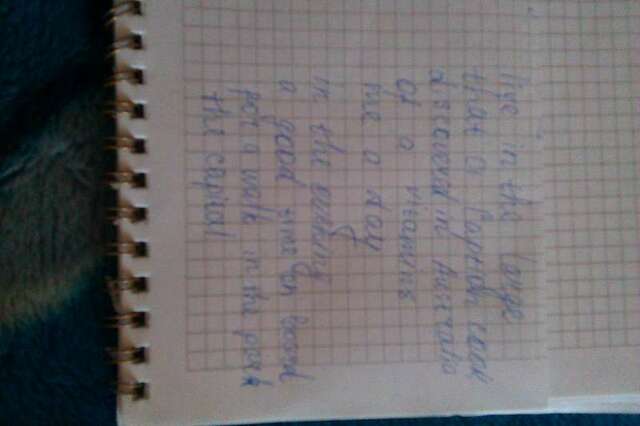 live in the large
that a Egyptian
discovered in Australia
of a vitamins
me a day
in the evening
a good time on board
for a walk in the park
the capital